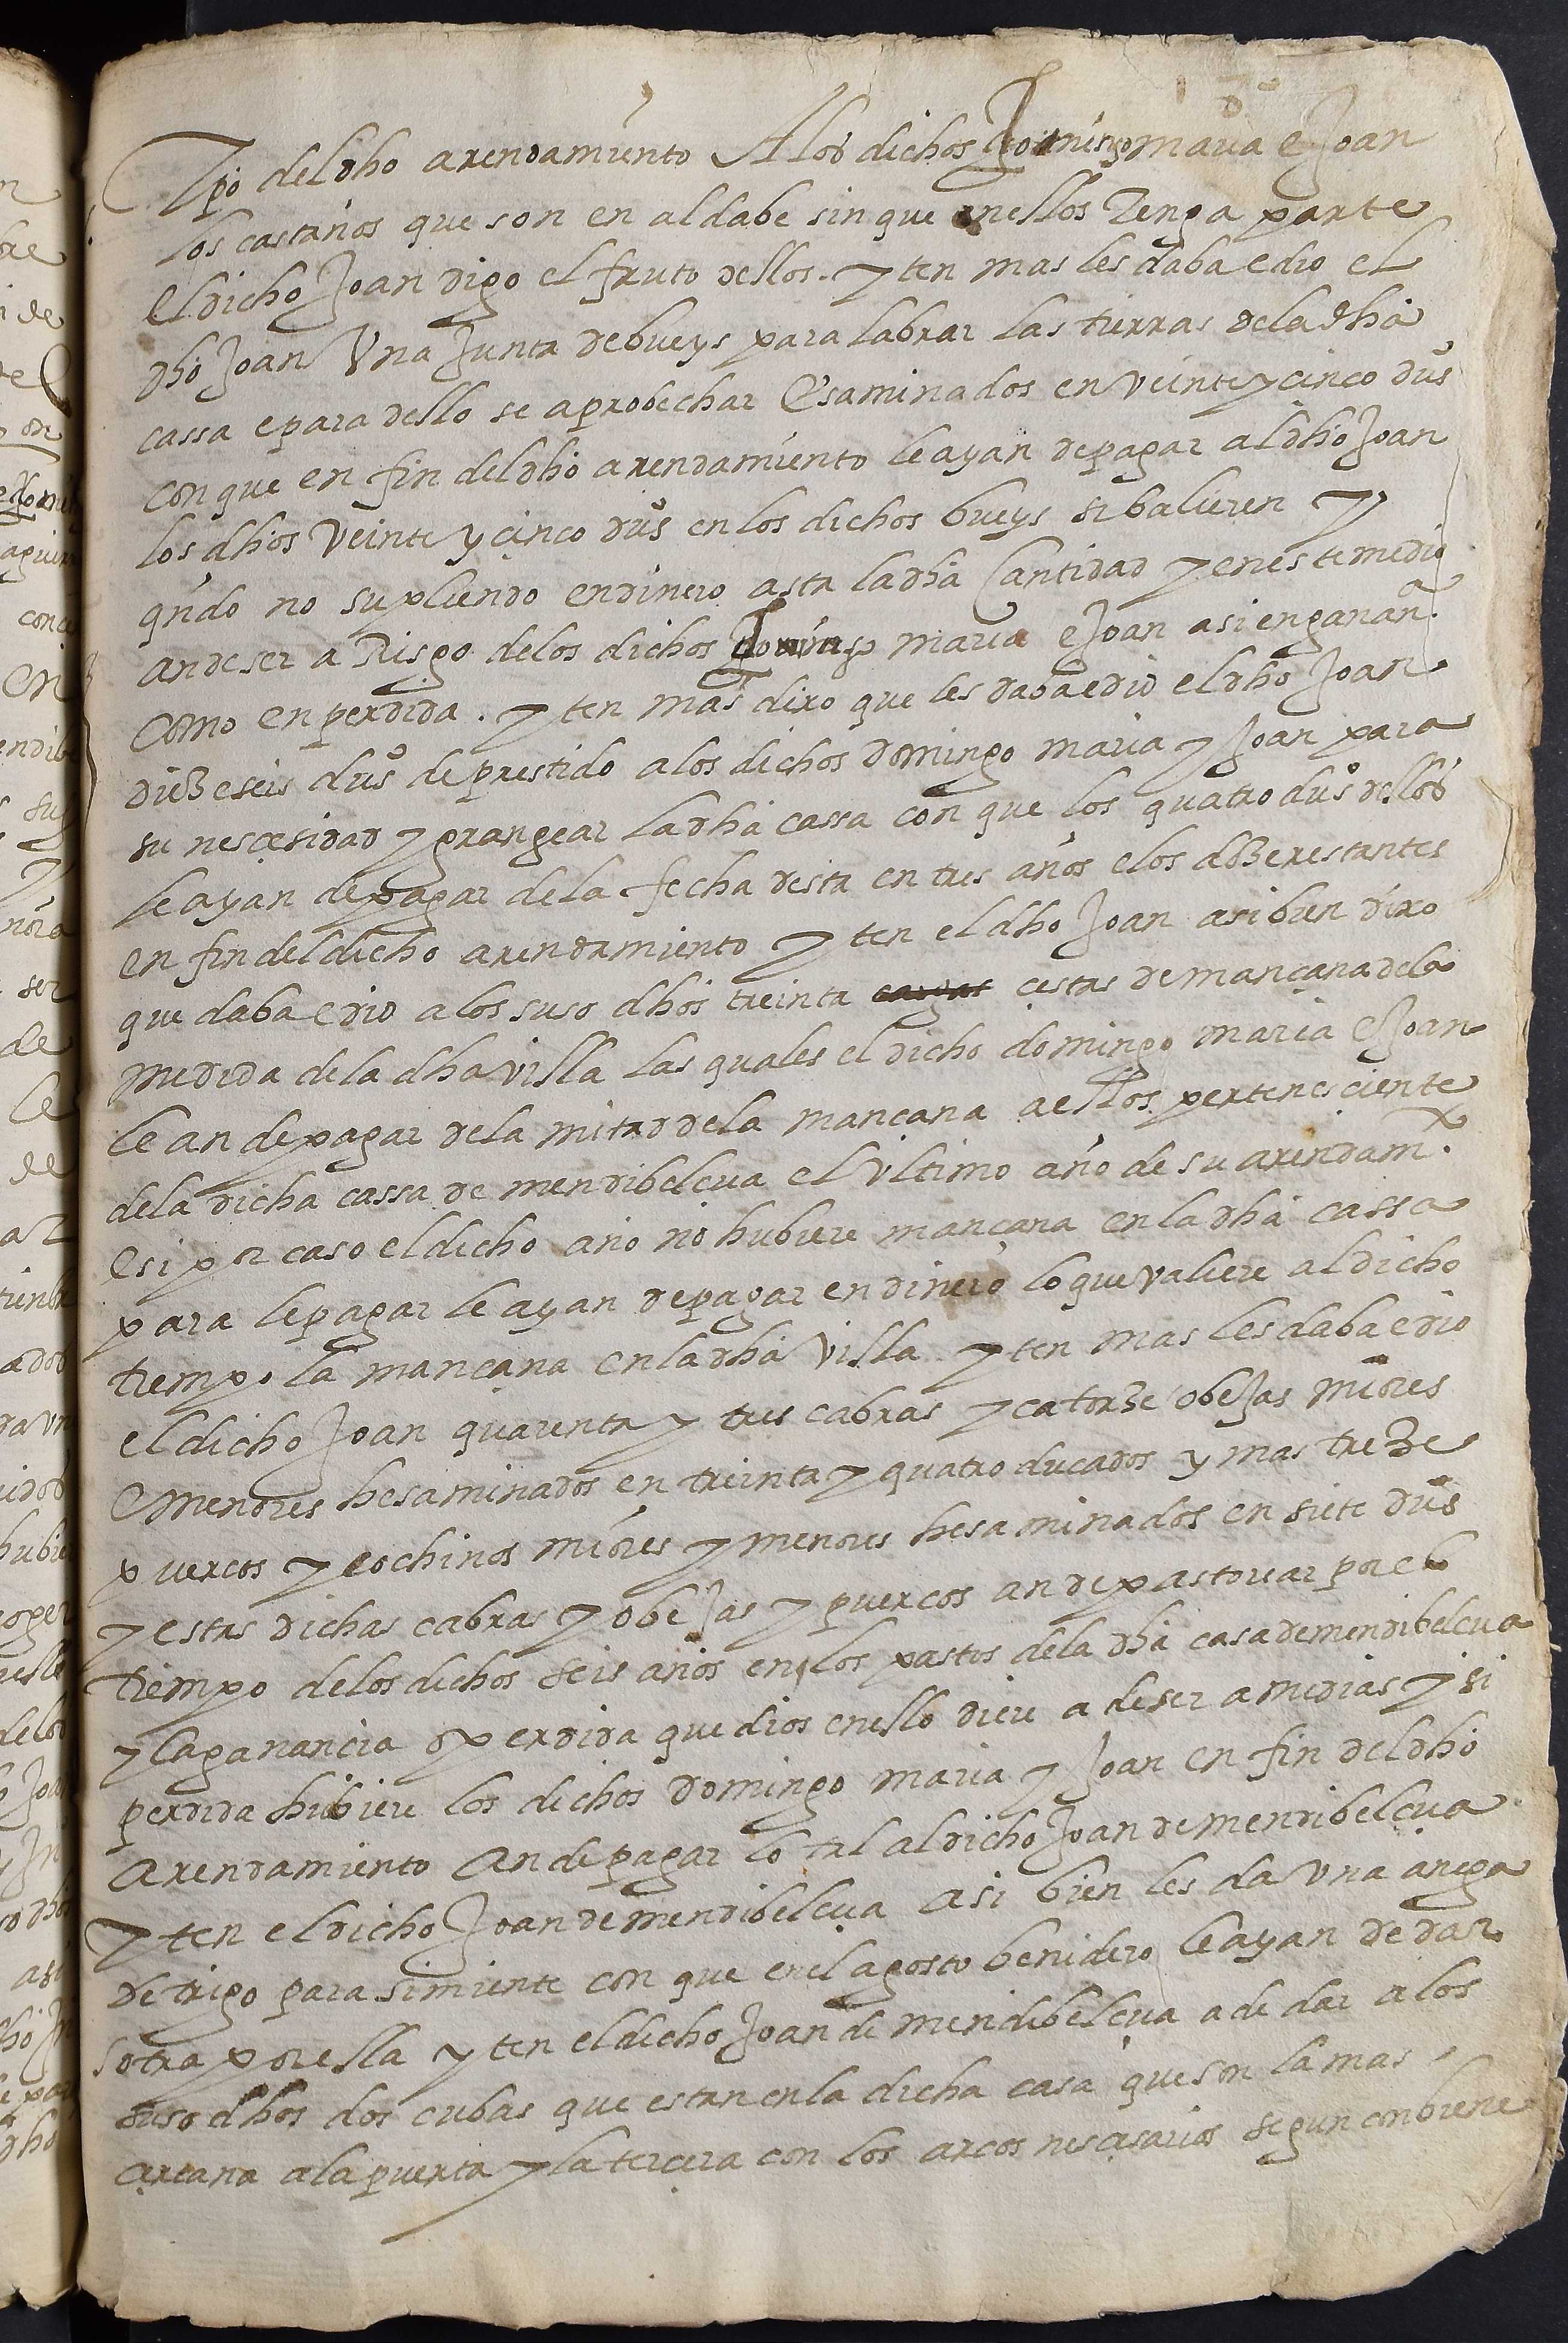 tpo del dho arendamiento A los dichos Domingo maria e Joan
los castaños que son en aldabe sin que en ellos tenga parte
el dicho Joan digo el fruto dellos. yten mas les daba e dio el
dho Joan Una Junta de bueys para labrar las tierras de la dha
cassa e para dello se aprobechar esaminados en veinte y cinco dus
con que en fin del dho arendamiento le ayan de pagar al dho Joan
los dhos veinte y cinco dus en los dichos bueys si balieren y
quando no supliendo en dinero asta la dha cantidad y en este medio
an de ser a Risgo de los dichos Domingo maria e Joan asi en ganançia
como en perdida. yten mas dixo que les daba e dio el dho Joan
dieZ e seis dus de prestido a los dichos domingo maria y Joan para
su nescesidad y grangear la dha cassa con que los quatro dus dellos
le ayan de pagar de la fecha desta en tres años e los doZe restantes
en fin del dicho arendamiento yten el dho Joan asi bien dixo
que daba e dio a los suso dhos treinta cestas de mançana de la
medida de la dha villa las quales el dicho domingo maria e Joan
le an de pagar de la mitad de la mançana a ellos pertenesciente
de la dicha cassa de mendibelçua el ultimo año de su arendam.to
e si por caso el dicho año no hubiere mançana en la dha cassa
para le pagar le ayan de pagar en dinero lo que valiere al dicho
tiempo la mançana en la dha villa. yten mas les daba e dio
el dicho Joan quarenta y tres cabras y catorZe obeJas mãores
e menores hesaminados en treinta y quatro ducados y mas treZe
puercos y cochinos mãores y menores hesaminados en siete dus
y estas dichas cabras y obeJas y puercos an de pastorear por el
tiempo de los dichos seis años en los pastos de la dha casa de mendibelçua
y la ganancia o perdida que dios en ello diere a de ser a medias y si
perdida hibiere los dichos Domingo maria y Joan en fin del dho
arendamiento an de pagar lo tal al dicho Joan de mendibelçua
yten el dicho Joan de mendibelçua asi bien les da una anega
de trigo para simiente con que en el agosto benidero le ayan de dar
otra por ella yten el dicho Joan de mendibelçua a de dar a los
suso dhos dos cubas que estan en la dicha casa que son la mas
çercana a la puerta y la terçera con los arcos nescesarios segun conbiene